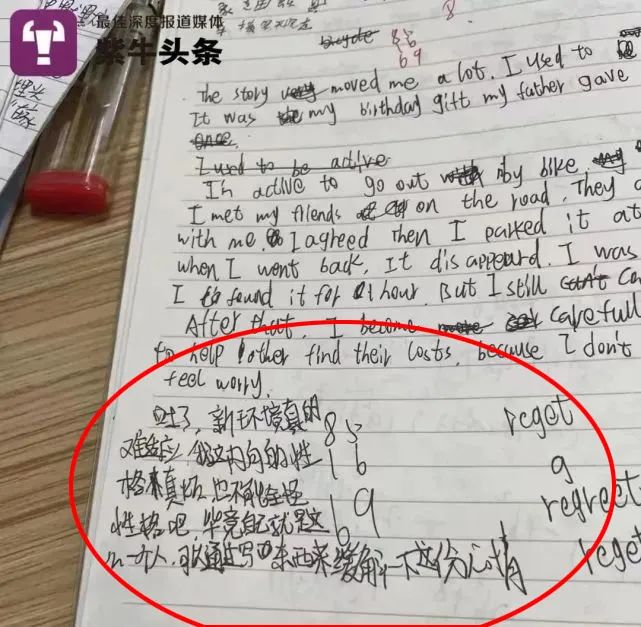 最佳深度报道媒体
紫牛头条
8
bicycle 85
69
The story moved me a lot. I used to
It was my birthday gift my father gave
I used to be active
In active to go out by bike.
I met my friends on the road. They
with me. I agreed then I parked it at
when I went back. It disappeard. I was
I found it for 1 hour. But I still can't
After that, I become carefull
to help other find their losts, because I don't
feel worry.
吐了，新环境真的 85 reget
难适应，我这内向的性 16 g
格真坏，也不能全怪 regrect
性格吧，毕竟自己就是这 69
么一个人，可以通过写写东西来缓解一下这份心情 reget